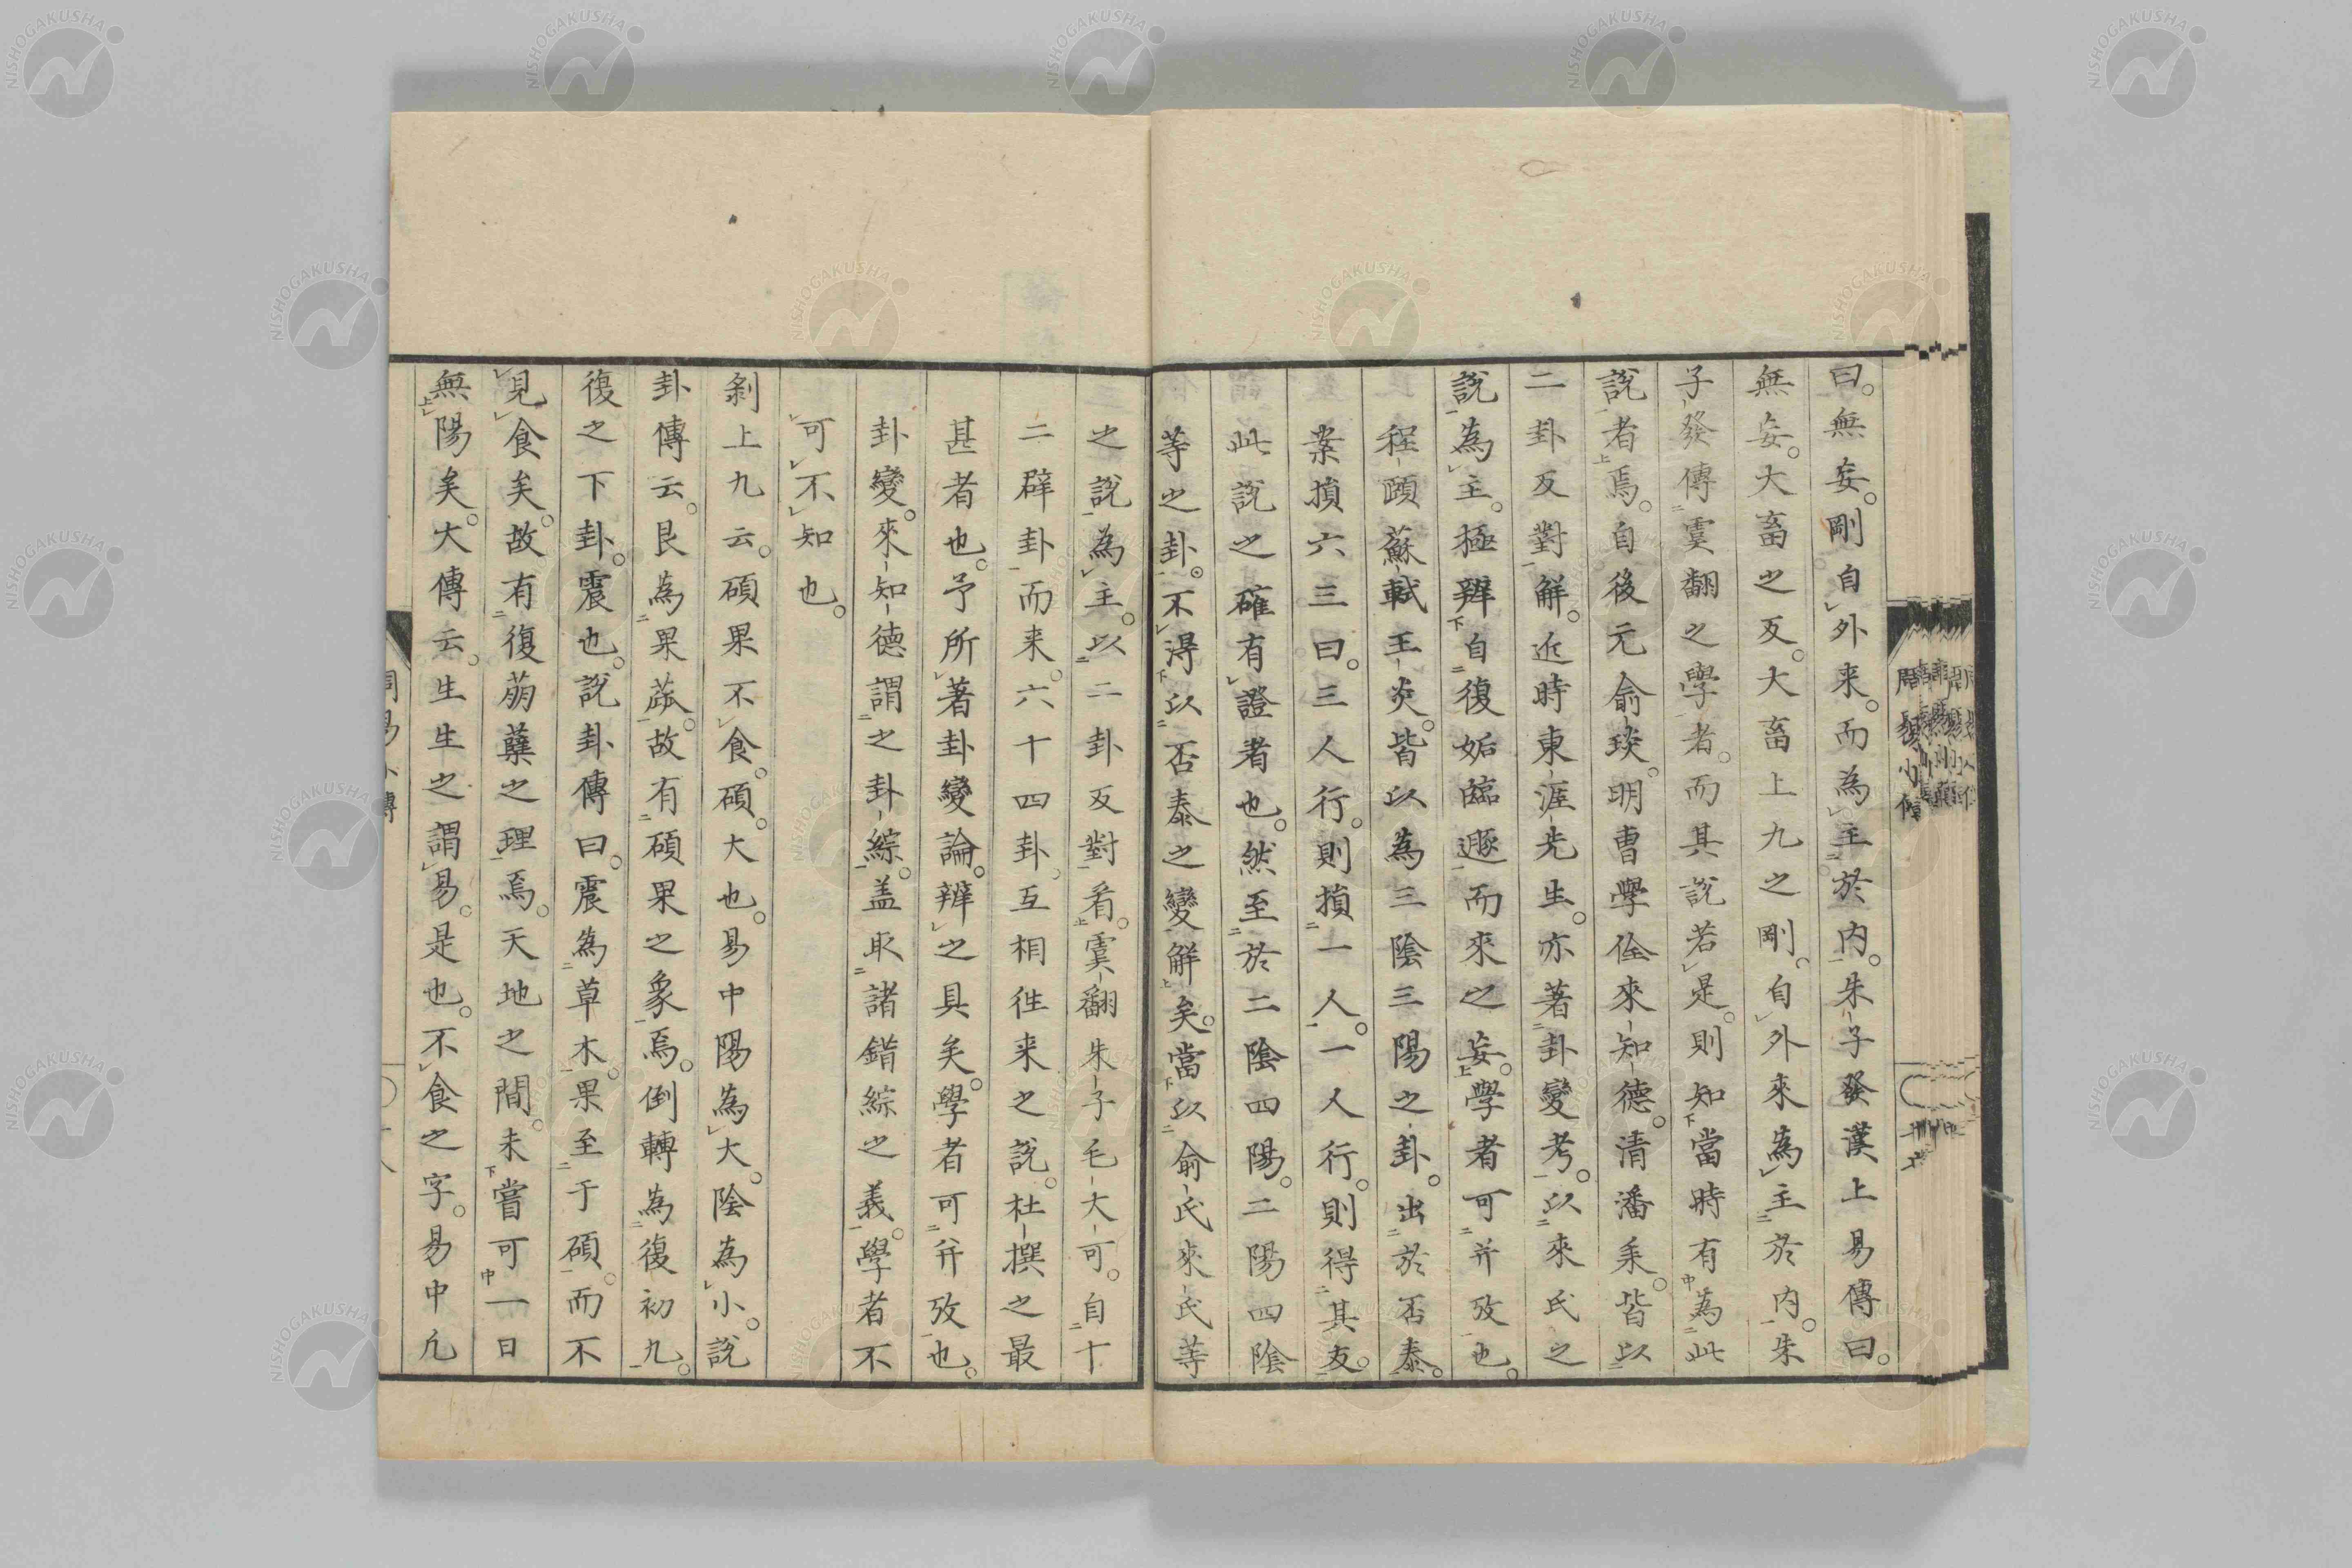 曰。無妄。剛自外来。而為主於内。朱子發漢上易傳曰。
無妄。大畜之反。大畜上九之剛。自外來為主於内。朱
子發傳虞翻之學者。而其說若是。則知當時有為此
說者焉。自後元俞琰。明曹學佺來知德。清潘耒。皆以
二卦反對解。近時東涯先生。亦著卦變考。以來氏之
說為主。極辨自復姤臨遯而來之妄。學者可并攷也。
程頤蘇軾王炎。皆以為三陰三陽之卦。出於否泰。
案損六三曰。三人行。則損一人。一人行。則得其友。
此說之確有證者也。然至於二陰四陽。二陽四陰
等之卦。不得以否泰之變解矣。當以俞氏來氏等
之說為主。以二卦反對看。虞翻朱子毛大可。自十
二辟卦而来。六十四卦。互相徃来之說。杜撰之最
甚者也。予所著卦變論。辨之具矣。學者可并攷也。
卦變。來知德謂之卦綜。盖取諸錯綜之義。學者不
可不知也。
剝上九云。碩果不食。碩。大也。易中陽為大。陰為小。說
卦傳云。艮為果蓏。故有碩果之象焉。倒轉為復初九。
復之下卦。震也。說卦傳曰。震為草木。果至于碩。而不
見食矣。故有復萠蘖之理焉。天地之間。未嘗可一日
無陽矣。大傳云。生生之謂易。是也。不食之字。易中凢
周易小傳
NISHOGAKUSHA